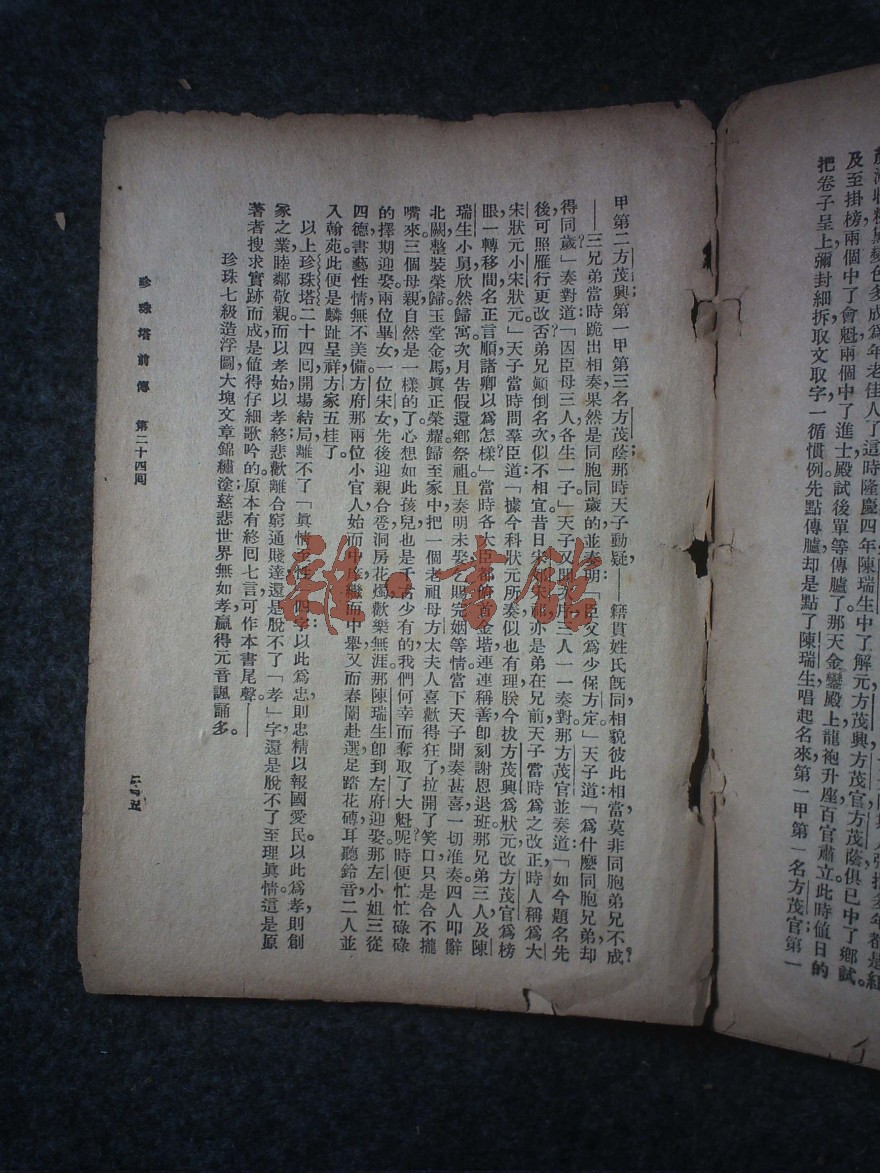 把卷子呈上彌封細拆取文取字一循慣例先點傳臚却是點了陳瑞生唱起名來第一甲第一名方茂官第一
及至掛榜兩個中了會魁兩個中了進士殿試後單等傳臚了那天金鑾殿上龍袍升座百官肅立此時值日的
色多成爲年老佳人了這時隆慶四年陳瑞生中了解元方茂興方茂官方茂蔭俱已中了鄉試。
甲第二方茂興第一甲第三名方茂蔭那時天子動疑——籍貫姓氏旣同相貌彼此相當莫非同胞弟兄不成？
——三兄弟當時跪出相奏果然是同胞同歲的並奏明「臣父爲少保方定。」天子道：「爲什麼同胞兄弟却
得同歲？」奏對道：「因臣母三人各生一子」天子又問次序三人一一奏對那方茂官並奏道：「如今題名先
後可照雁行更改否弟兄顛倒名次似不相宜昔日宋郊宋祁亦是弟在兄前天子當時爲之改正時人稱爲大
宋狀元小宋狀元。」天子當時問羣臣道：「據今科狀元所奏似也有理朕今拔方茂興爲狀元改方茂官爲榜
眼一轉移間名正言順諸卿以爲怎樣？」當時各大臣都俯首金堦連連稱善卽刻謝恩退班那兄弟三人及陳
瑞生小舅欣然歸寓次月告假還鄉祭祖且奏明未娶乞賜完姻等情當下天子聞奏甚喜一切准奏四人叩辭
北闕整裝榮歸玉堂金馬眞正榮耀歸至家中把一個老祖母方太夫人喜歡得狂了拉開了笑口只是合不攏
嘴來三個母親自然是一樣的了心想如此孩兒也是千古少有的我們何幸而奪取了大魁呢？時便忙忙碌碌
的擇期迎娶兩位畢女一位宋女先後迎親合卺洞房花燭歡樂無涯那陳瑞生卽到左府迎娶那左小姐三從
四德書藝性情無不美備方府那兩位小官人始而中繼而中舉又而春闈赴選足踏花磚耳聽鈴音二人並
入翰苑此便是麟趾呈祥方家五桂了。
以上珍珠塔二十四囘開場結局離不了「眞情至性」四字以此爲忠則忠精以報國愛民。以此爲孝則創
家之業睦鄰敬親而以孝始以孝終悲歡離合窮通賤達還是脫不了「孝」字還是脫不了至理眞情這是原
著者搜求實跡而成是值得仔細歌吟的原本有終囘七言可作本書尾聲。——
珍珠七級造浮圖大塊文章錦繡塗慈悲世界無如孝贏得元音諷誦多。
珍珠塔前傳　第二十四囘
二四五
雜·書館